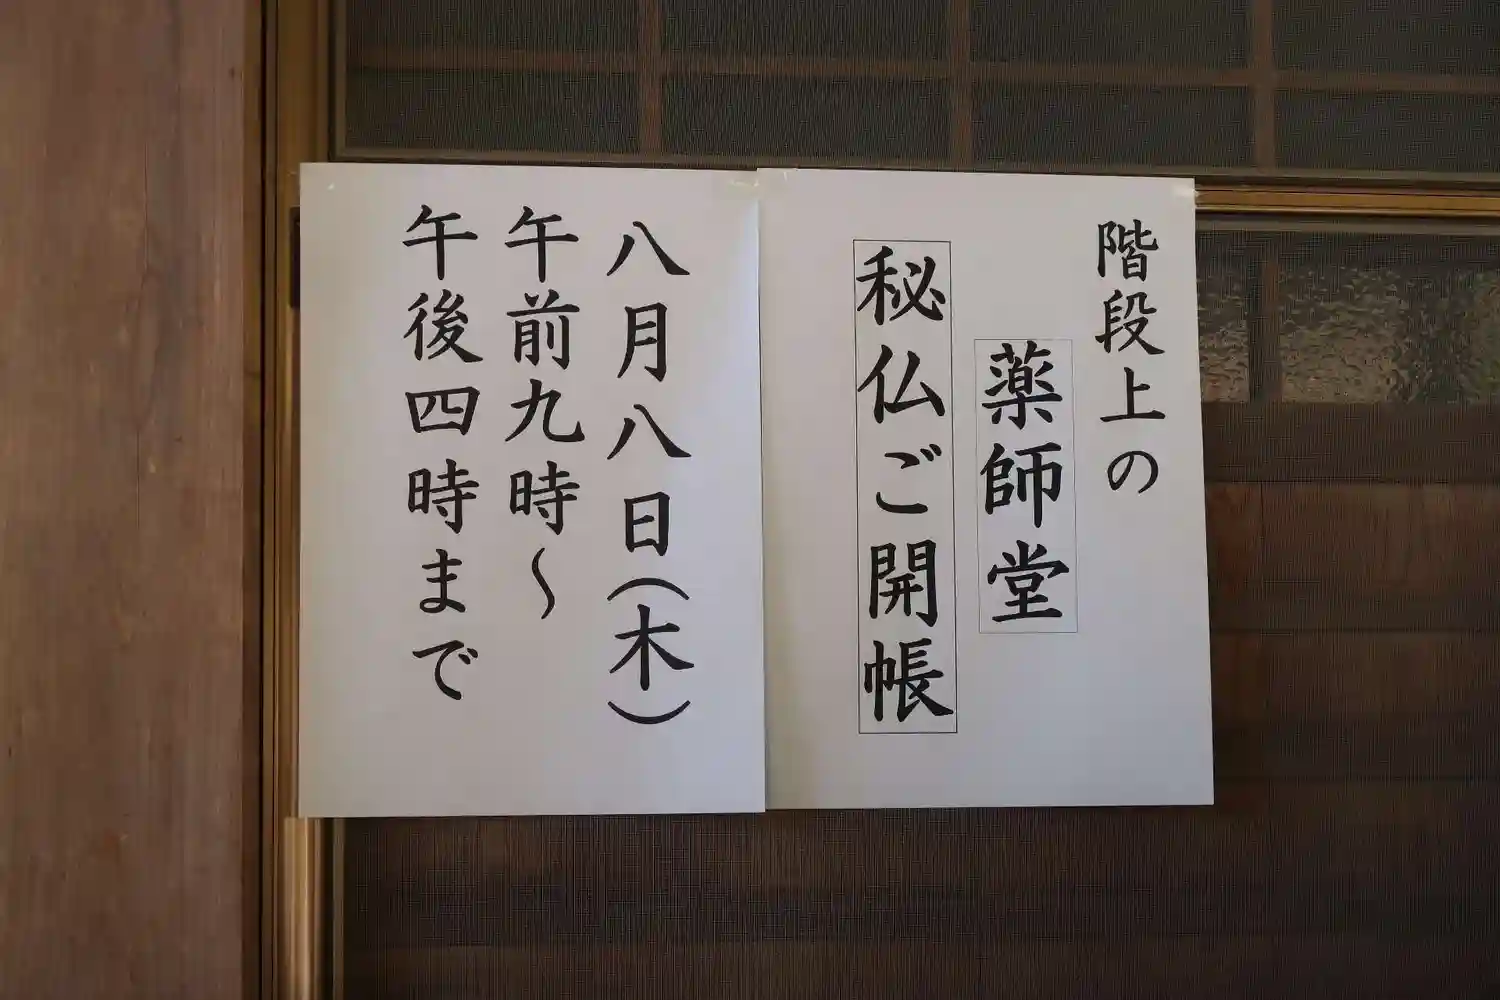 階段上の
薬師堂
秘仏ご開帳
八月八日(木)
午前九時〜
午後四時まで